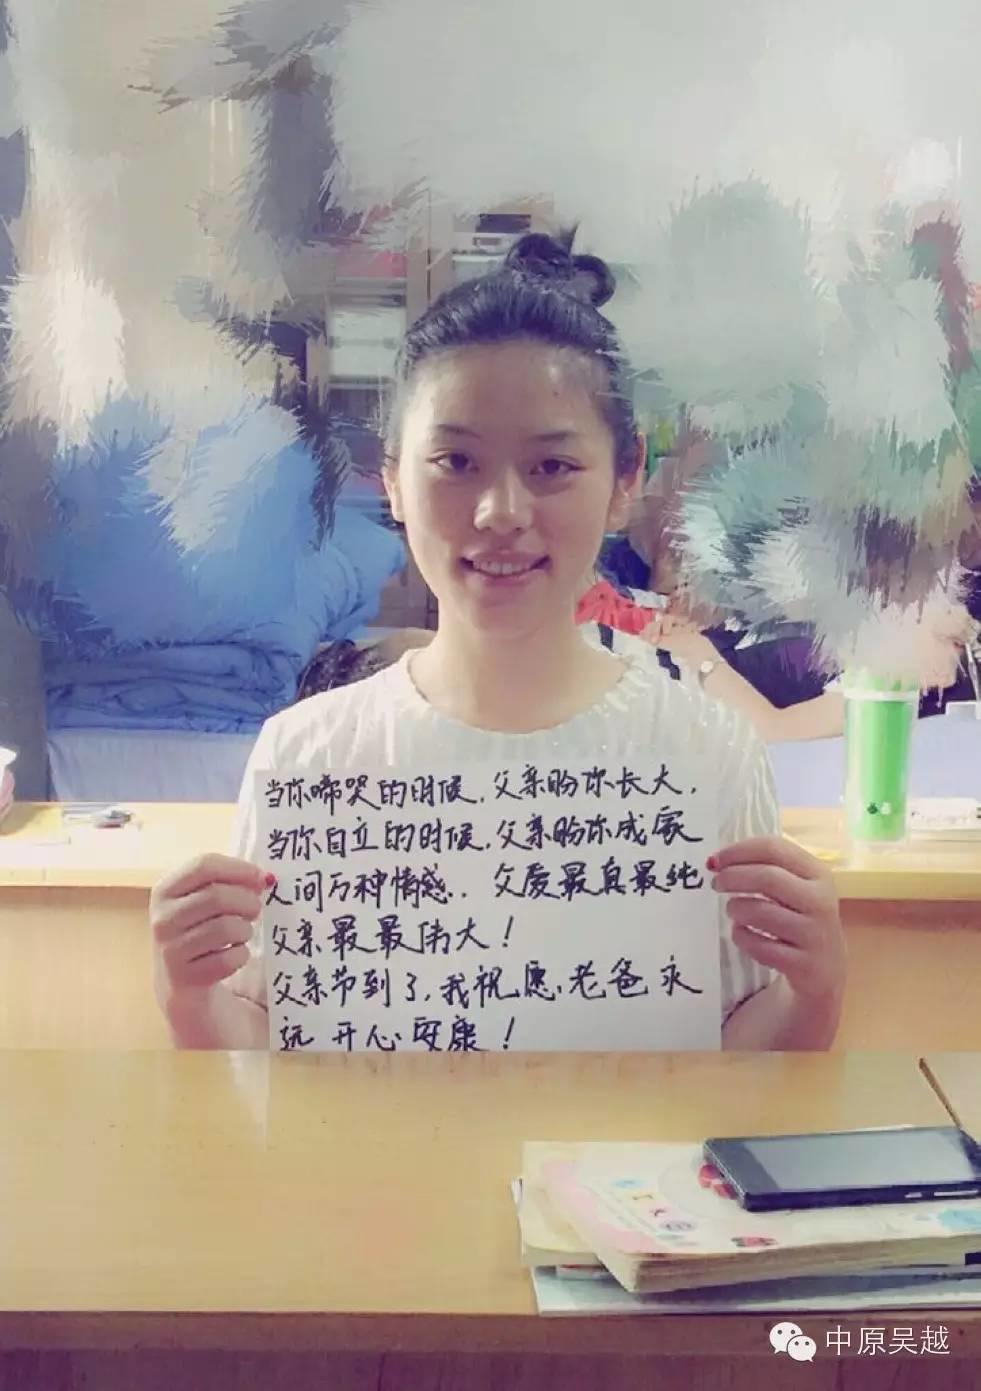 当你啼哭的时候，父亲盼你长大，
当你自立的时候，父亲盼你成家
人间万种情感，父爱最真最纯
父亲最最伟大！
父亲节到了，我祝愿老爸永
远开心安康！
中原吴越